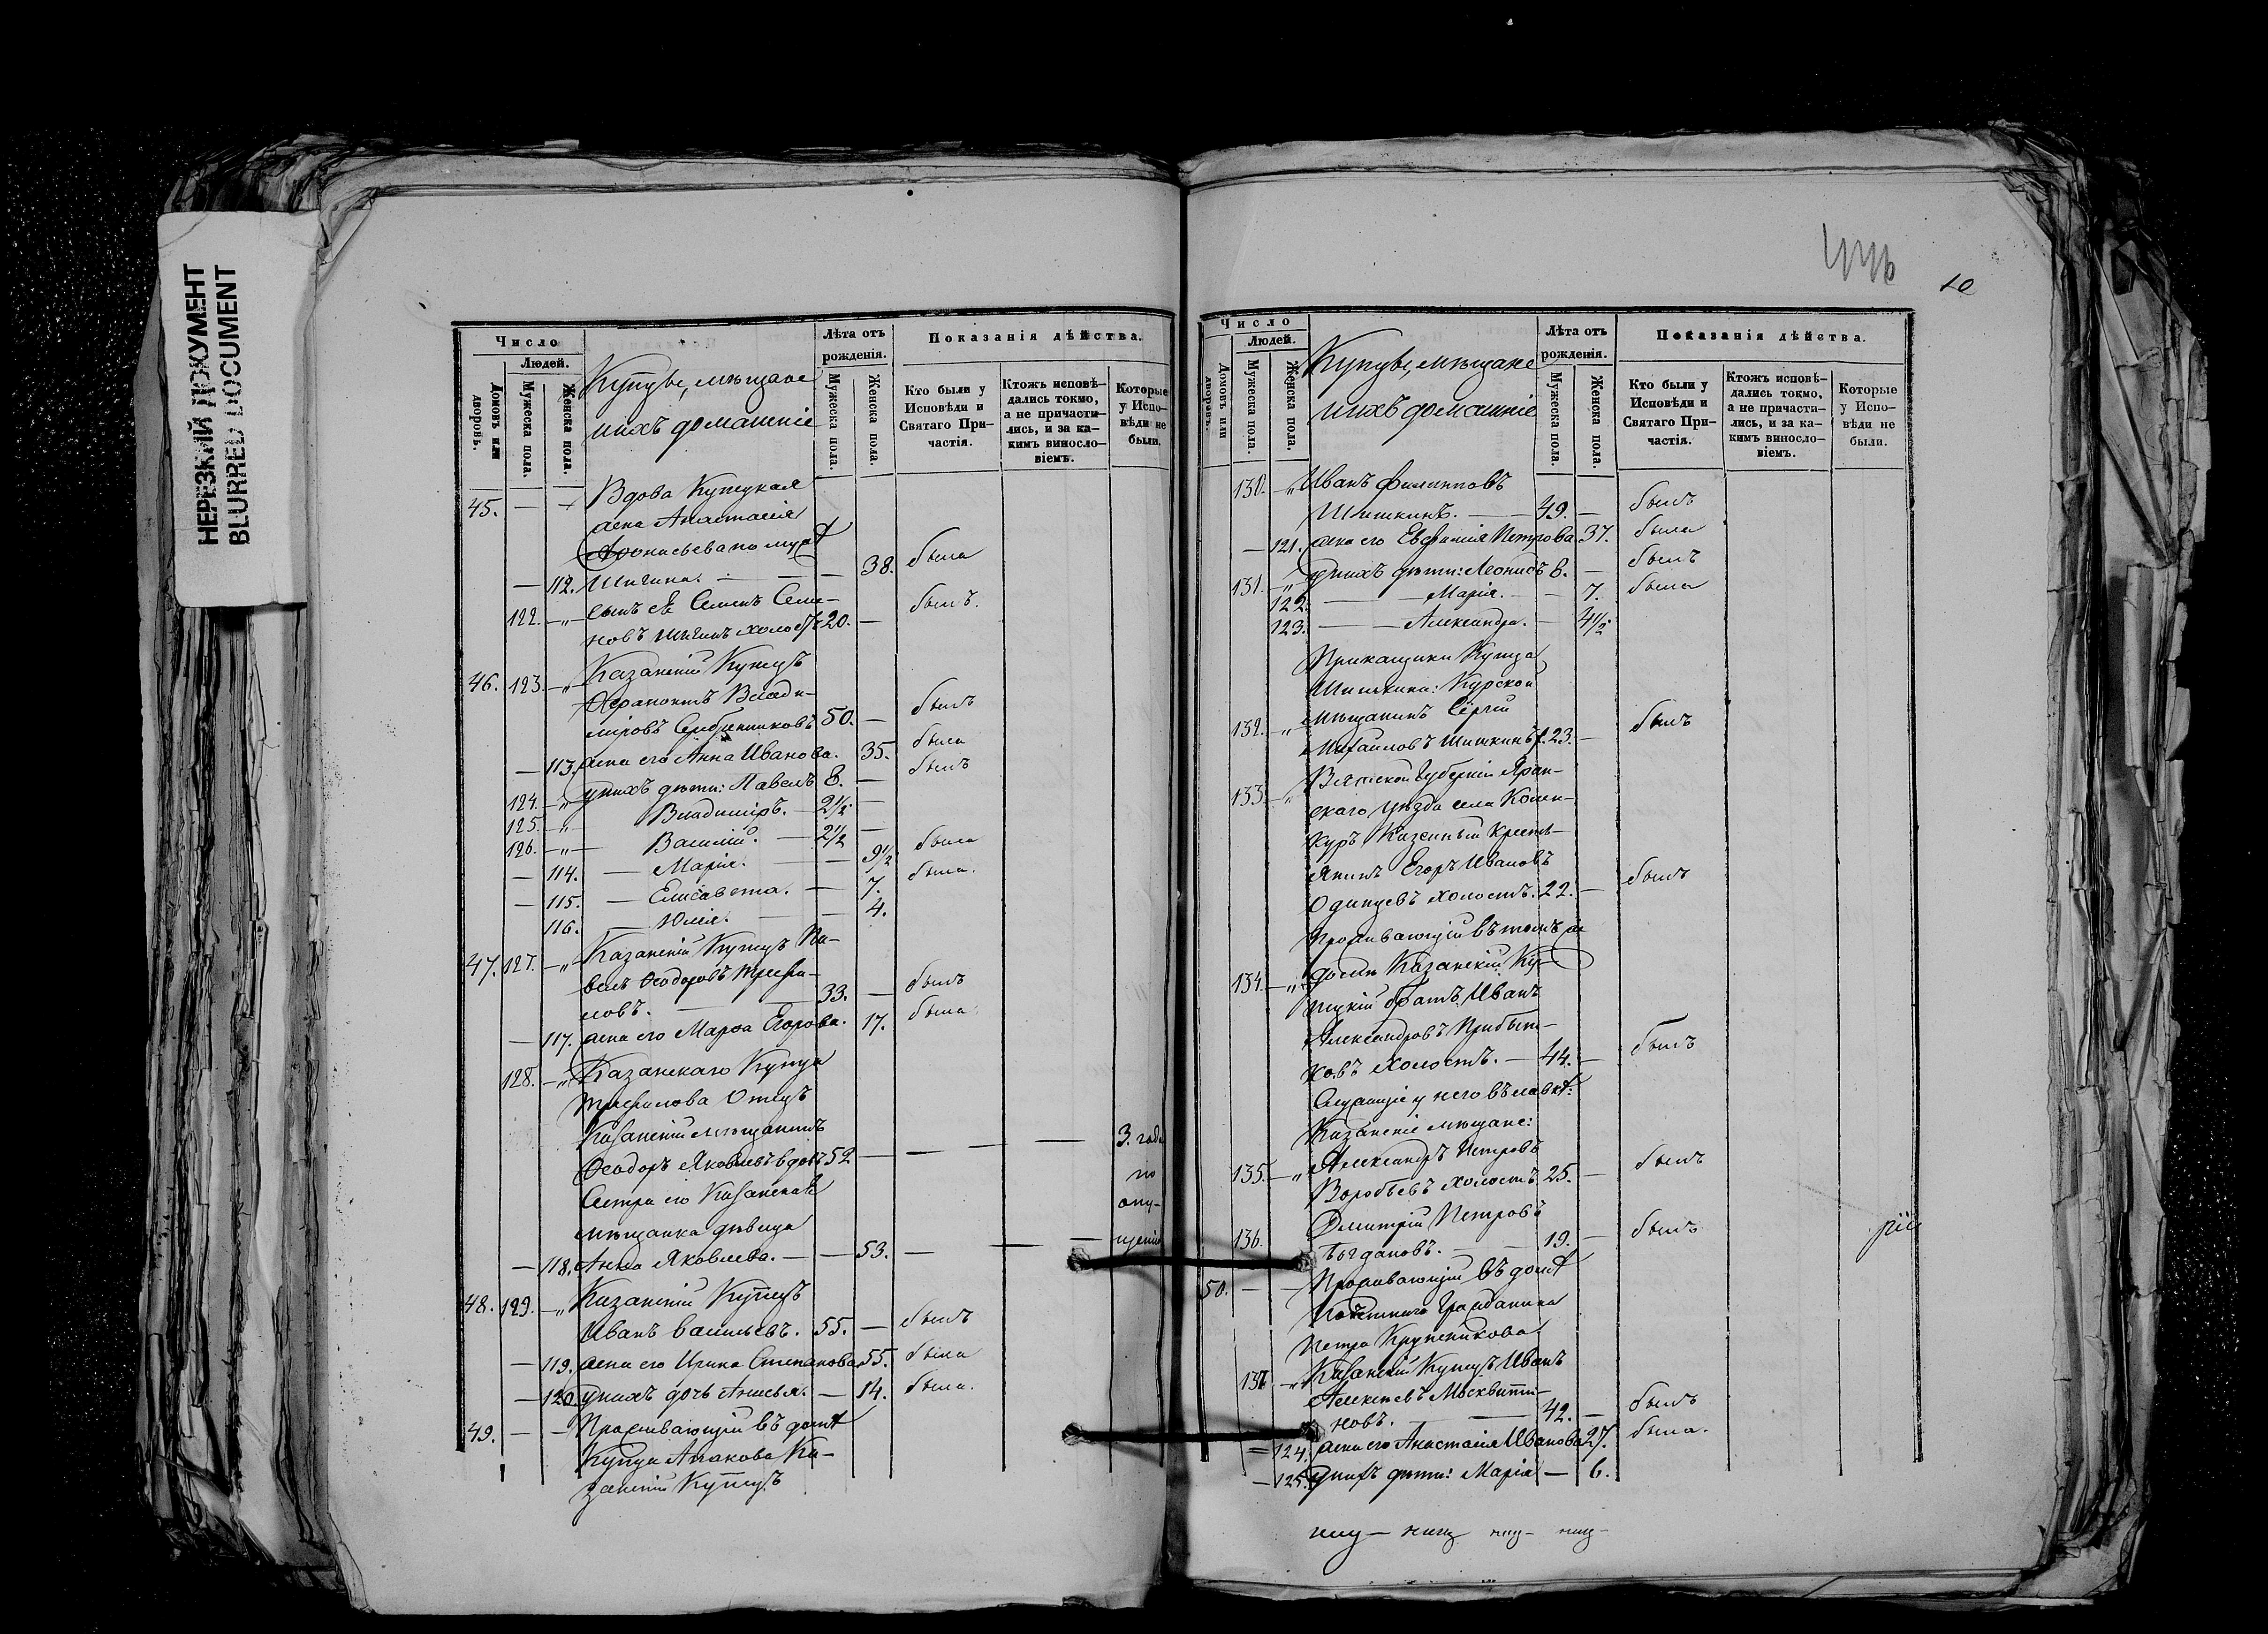 НЕРЕЗКИЙ ДОКУМЕНТ
BLURRED DOCUMENT
Число
Людей.
Домовъ или дворовъ.
Мужеска пола.
Женска пола.
Купцы, мѣщане
и ихъ домашніе
Лѣта отъ рожденія.
Мужеска пола.
Женска пола.
Показанія дѣйства.
Кто были у Исповѣди и Святаго Причастія.
Ктожъ исповѣ-
дались токмо,
а не причасти-
лись, и за ка-
кимъ винносло-
віемъ.
Которые
у Испо-
вѣди не
были.
45. — — Вдова Купецкая
жена Анастасія
Аѳонасьева по мужѣ
— 112. Шигина. — 38. была
122. —„— сынъ ея Семенъ Семе-
новъ Шигинъ холостъ 20. — былъ.
46. 123. —„— Казанскій Купецъ
Ѳерапонтъ Влади-
міровъ Серебренниковъ 50. — былъ
— 113. жена его Анна Иванова. 35. была
124. —„— у нихъ дѣти: Павелъ 8. — былъ
125. —„— Владиміръ. — 2½ —
126. —„— Василій. — 2½ —
— 114. — Марія. — 9½ была
— 115. — Елисавета. — 7. была.
116. — Юлія. — 4.
47. 127. —„— Казанскій Купецъ Па-
велъ Ѳеодоровъ Трефи-
ловъ. — 33. — былъ
— 117. жена его Марѳа Егорова. 17. была
128. —„— Казанскаго Купца
Трефилова Отецъ
Казанскій мѣщанинъ
Ѳеодоръ Яковлевъ вдовъ 52 — — — 3. года
по
опу-
щенію
Сестра его Казанская
мѣщанка дѣвица
— 118. Анна Яковлева. — — 53. — — —
48. 129. —„— Казанскій Купецъ
Иванъ Васильевъ. 55. — былъ
— 119. жена его Ирина Степанова 55. была
— 120. у нихъ дочь Анисья. — 14. была.
49. — — Проживающій въ домѣ
Купца Ка-
занскій Купецъ
10
Число
Людей.
Домовъ или дворовъ.
Мужеска пола.
Женска пола.
Купцы, мѣщане
и ихъ домашніе
Лѣта отъ рожденія.
Мужеска пола.
Женска пола.
Показанія дѣйства.
Кто были у Исповѣди и Святаго Причастія.
Ктожъ исповѣ-
дались токмо,
а не причасти-
лись, и за ка-
кимъ винносло-
віемъ.
Которые
у Испо-
вѣди не
были.
130. —„ Иванъ Филипповъ
Шишкинъ. — 49. — былъ
— 121. жена его Евфимія Петрова 37. была
131. —„ у нихъ дѣти: Леонидъ 8. — былъ
122. — — Марія. — — 7. была
123. — — Александра. — 4½
Прикащики Купца
Шишкина: Курской
132. „ мѣщанинъ Сергій
Михайловъ Шишкинъ 23. — былъ
133. —„ Вятской Губерніи Яран-
скаго Уѣзда села
Казенный кресть-
янинъ Егоръ Ивановъ
Одинцевъ холостъ. 22. — былъ
Проживающій въ томъ же
134. —„ домѣ Казанскій Ку-
пецкій братъ Иванъ
Александровъ Прибыт-
ковъ холостъ. — 44. — былъ
Служащіе у него въ лавкѣ:
Казанскіе мѣщане:
135. —„ Александръ Петровъ
Воробьевъ холостъ 25. — былъ
136. Дмитрій Петровъ
Богдановъ. — 19. — былъ
50. — — Проживающій въ домѣ
Почетнаго Гражданина
Петра Крупеникова
137 —„ Казанскій Купецъ Иванъ
Алексѣевъ Москвити-
новъ. — 42. — былъ
— 124. жена его Анастасія Иванова 27. была.
— 125. у нихъ дѣти: Марія — 6.